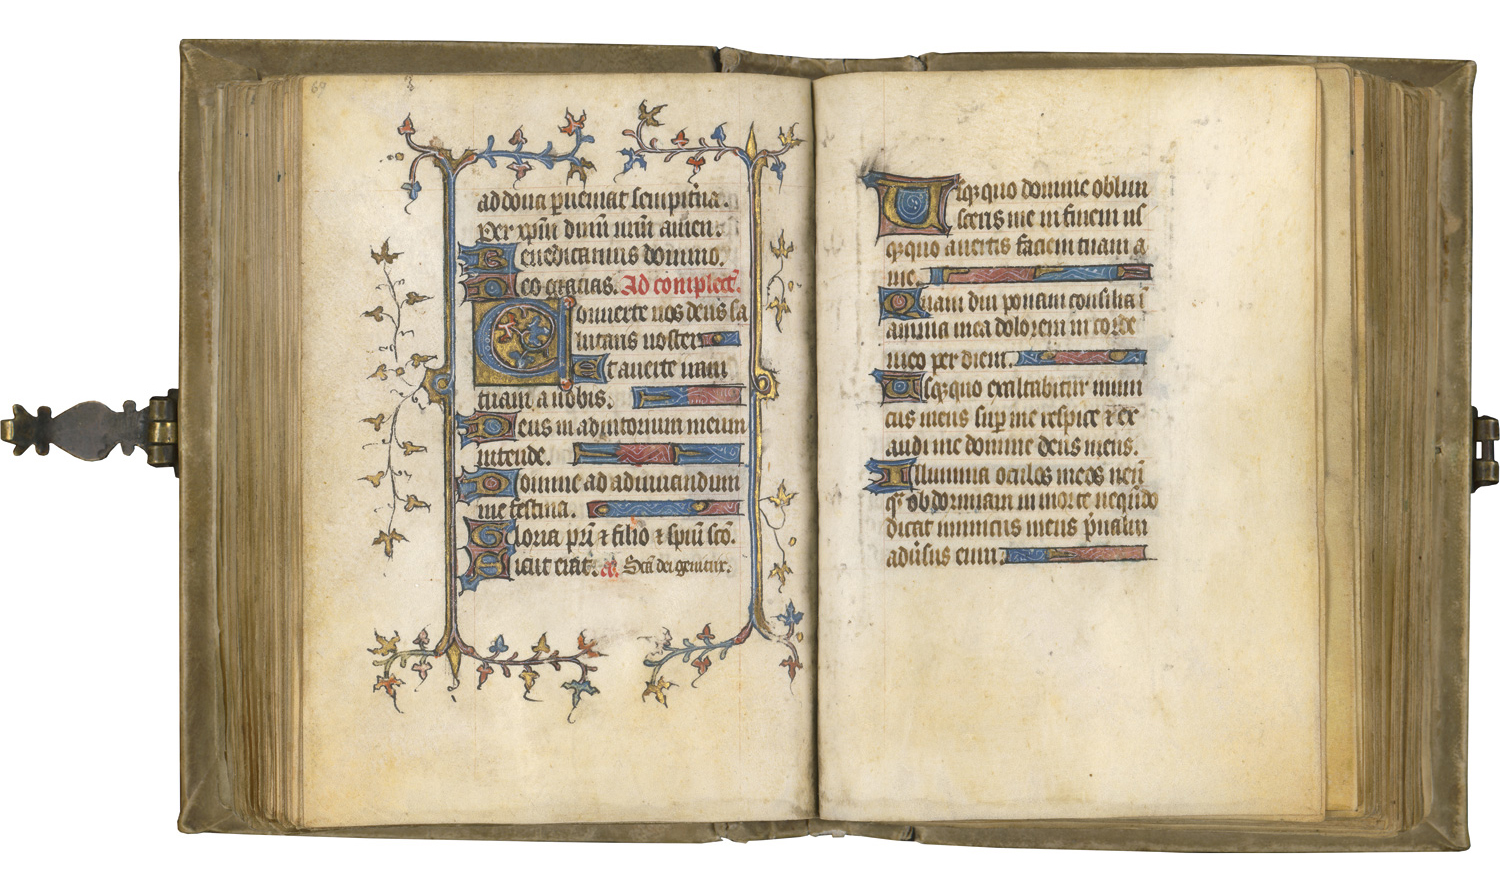 69
ad dona pueniat sempitna.
Per xpm dnm nrm amen.
Benedicamus domino.
Deo gracias. Ad complect.
Conuerte nos deus sa
lutaris noster
Et auerte iram
tuam a nobis.
Deus in adiutorium meum
intende.
Domine ad adiuuandum
me festina.
Gloria pri ⁊ filio ⁊ spiui sco.
Sicut erat. an. Sca dei genitrix.
Usqzquo domine obliui
sceris me in finem us
qzquo auertis faciem tuam a
me.
Quam diu ponam consilia i
anima mea dolorem in corde
meo per diem.
Usqzquo exaltabitur inimi
cus meus sup me respice ⁊ ex
audi me domine deus meus.
Illumina oculos meos ne un
qz obdormiam in morte nequdo
dicat inimicus meus pualui
aduersus eum.